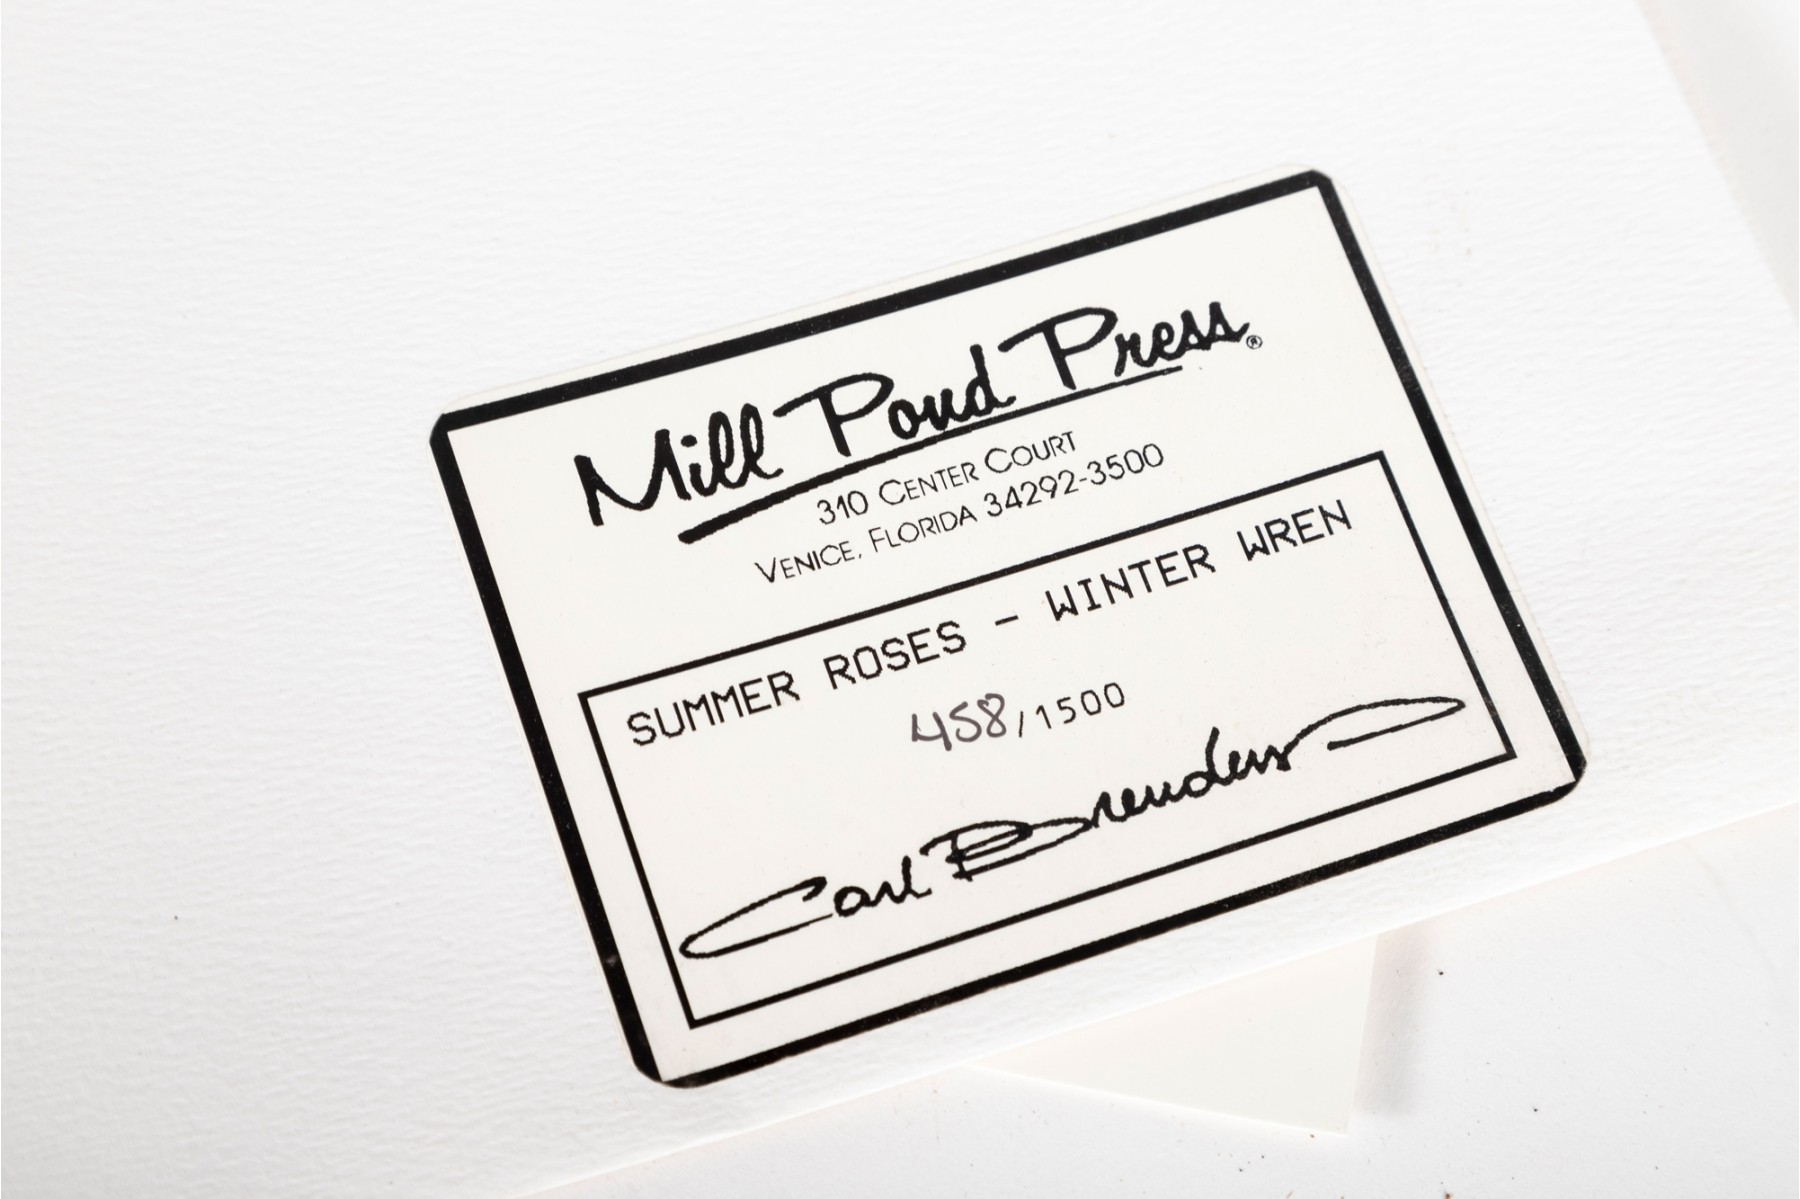 Mill Pond Press®
310 CENTER COURT
VENICE, FLORIDA 34292-3500
SUMMER ROSES - WINTER WREN
458/1500
Carl Brenders